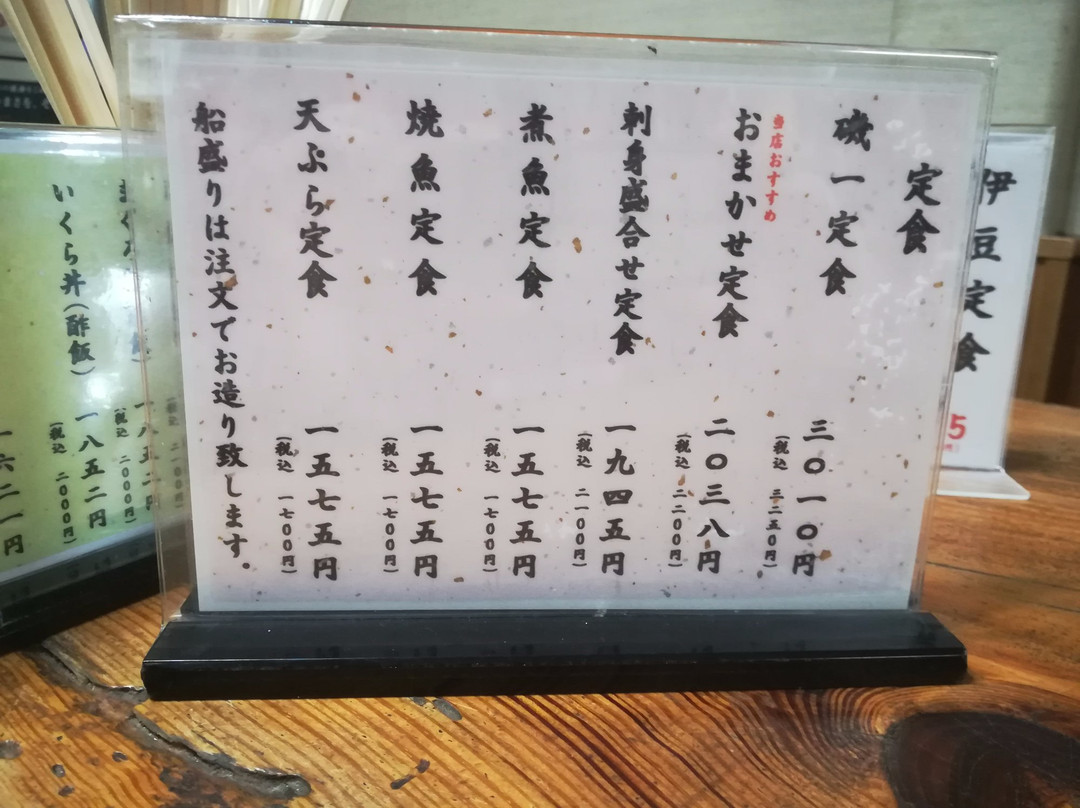 定食
磯一定食 三〇一〇円
(税込 三二五〇円)
当店おすすめ
おまかせ定食 二〇三八円
(税込 二二〇〇円)
刺身盛合せ定食 一九四五円
(税込 二一〇〇円)
煮魚定食 一五七五円
(税込 一七〇〇円)
焼魚定食 一五七五円
(税込 一七〇〇円)
天ぷら定食 一五七五円
(税込 一七〇〇円)
船盛りは注文でお造り致します。
伊豆定食
5
いくら丼(酢飯) 一八五二円
(税込 二〇〇〇円)
一六二一円